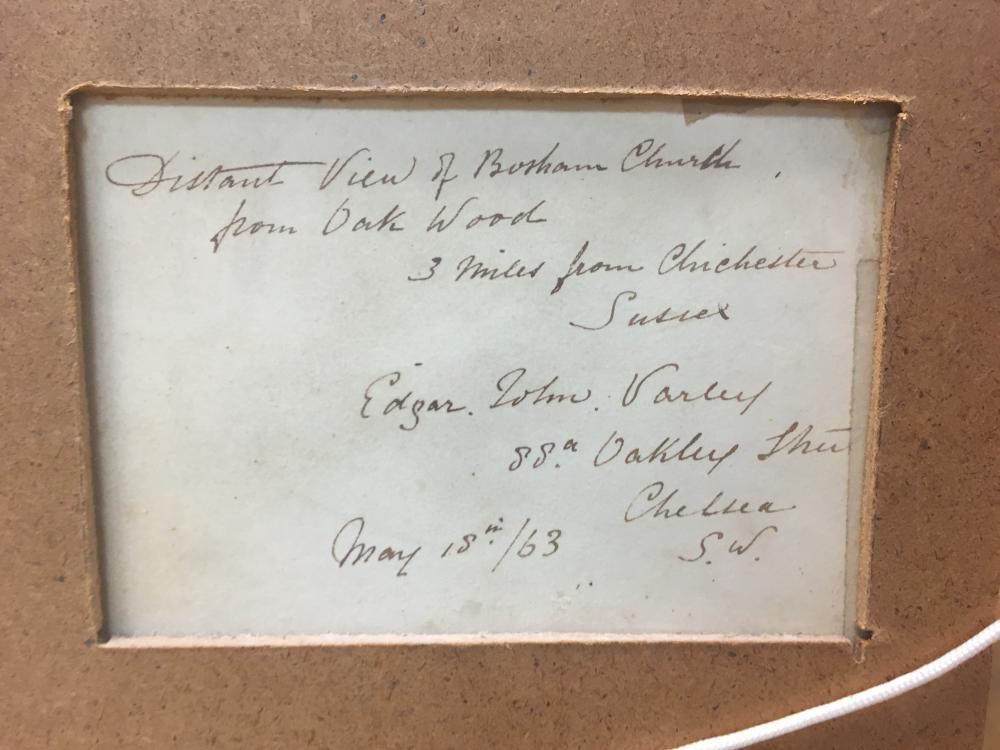 Distant View of Bosham Church
from Oak Wood
3 Miles from Chichester
Sussex
Edgar. John. Varley
88.a Oakley Stree
Chelsea
May 18th/63 S.W.